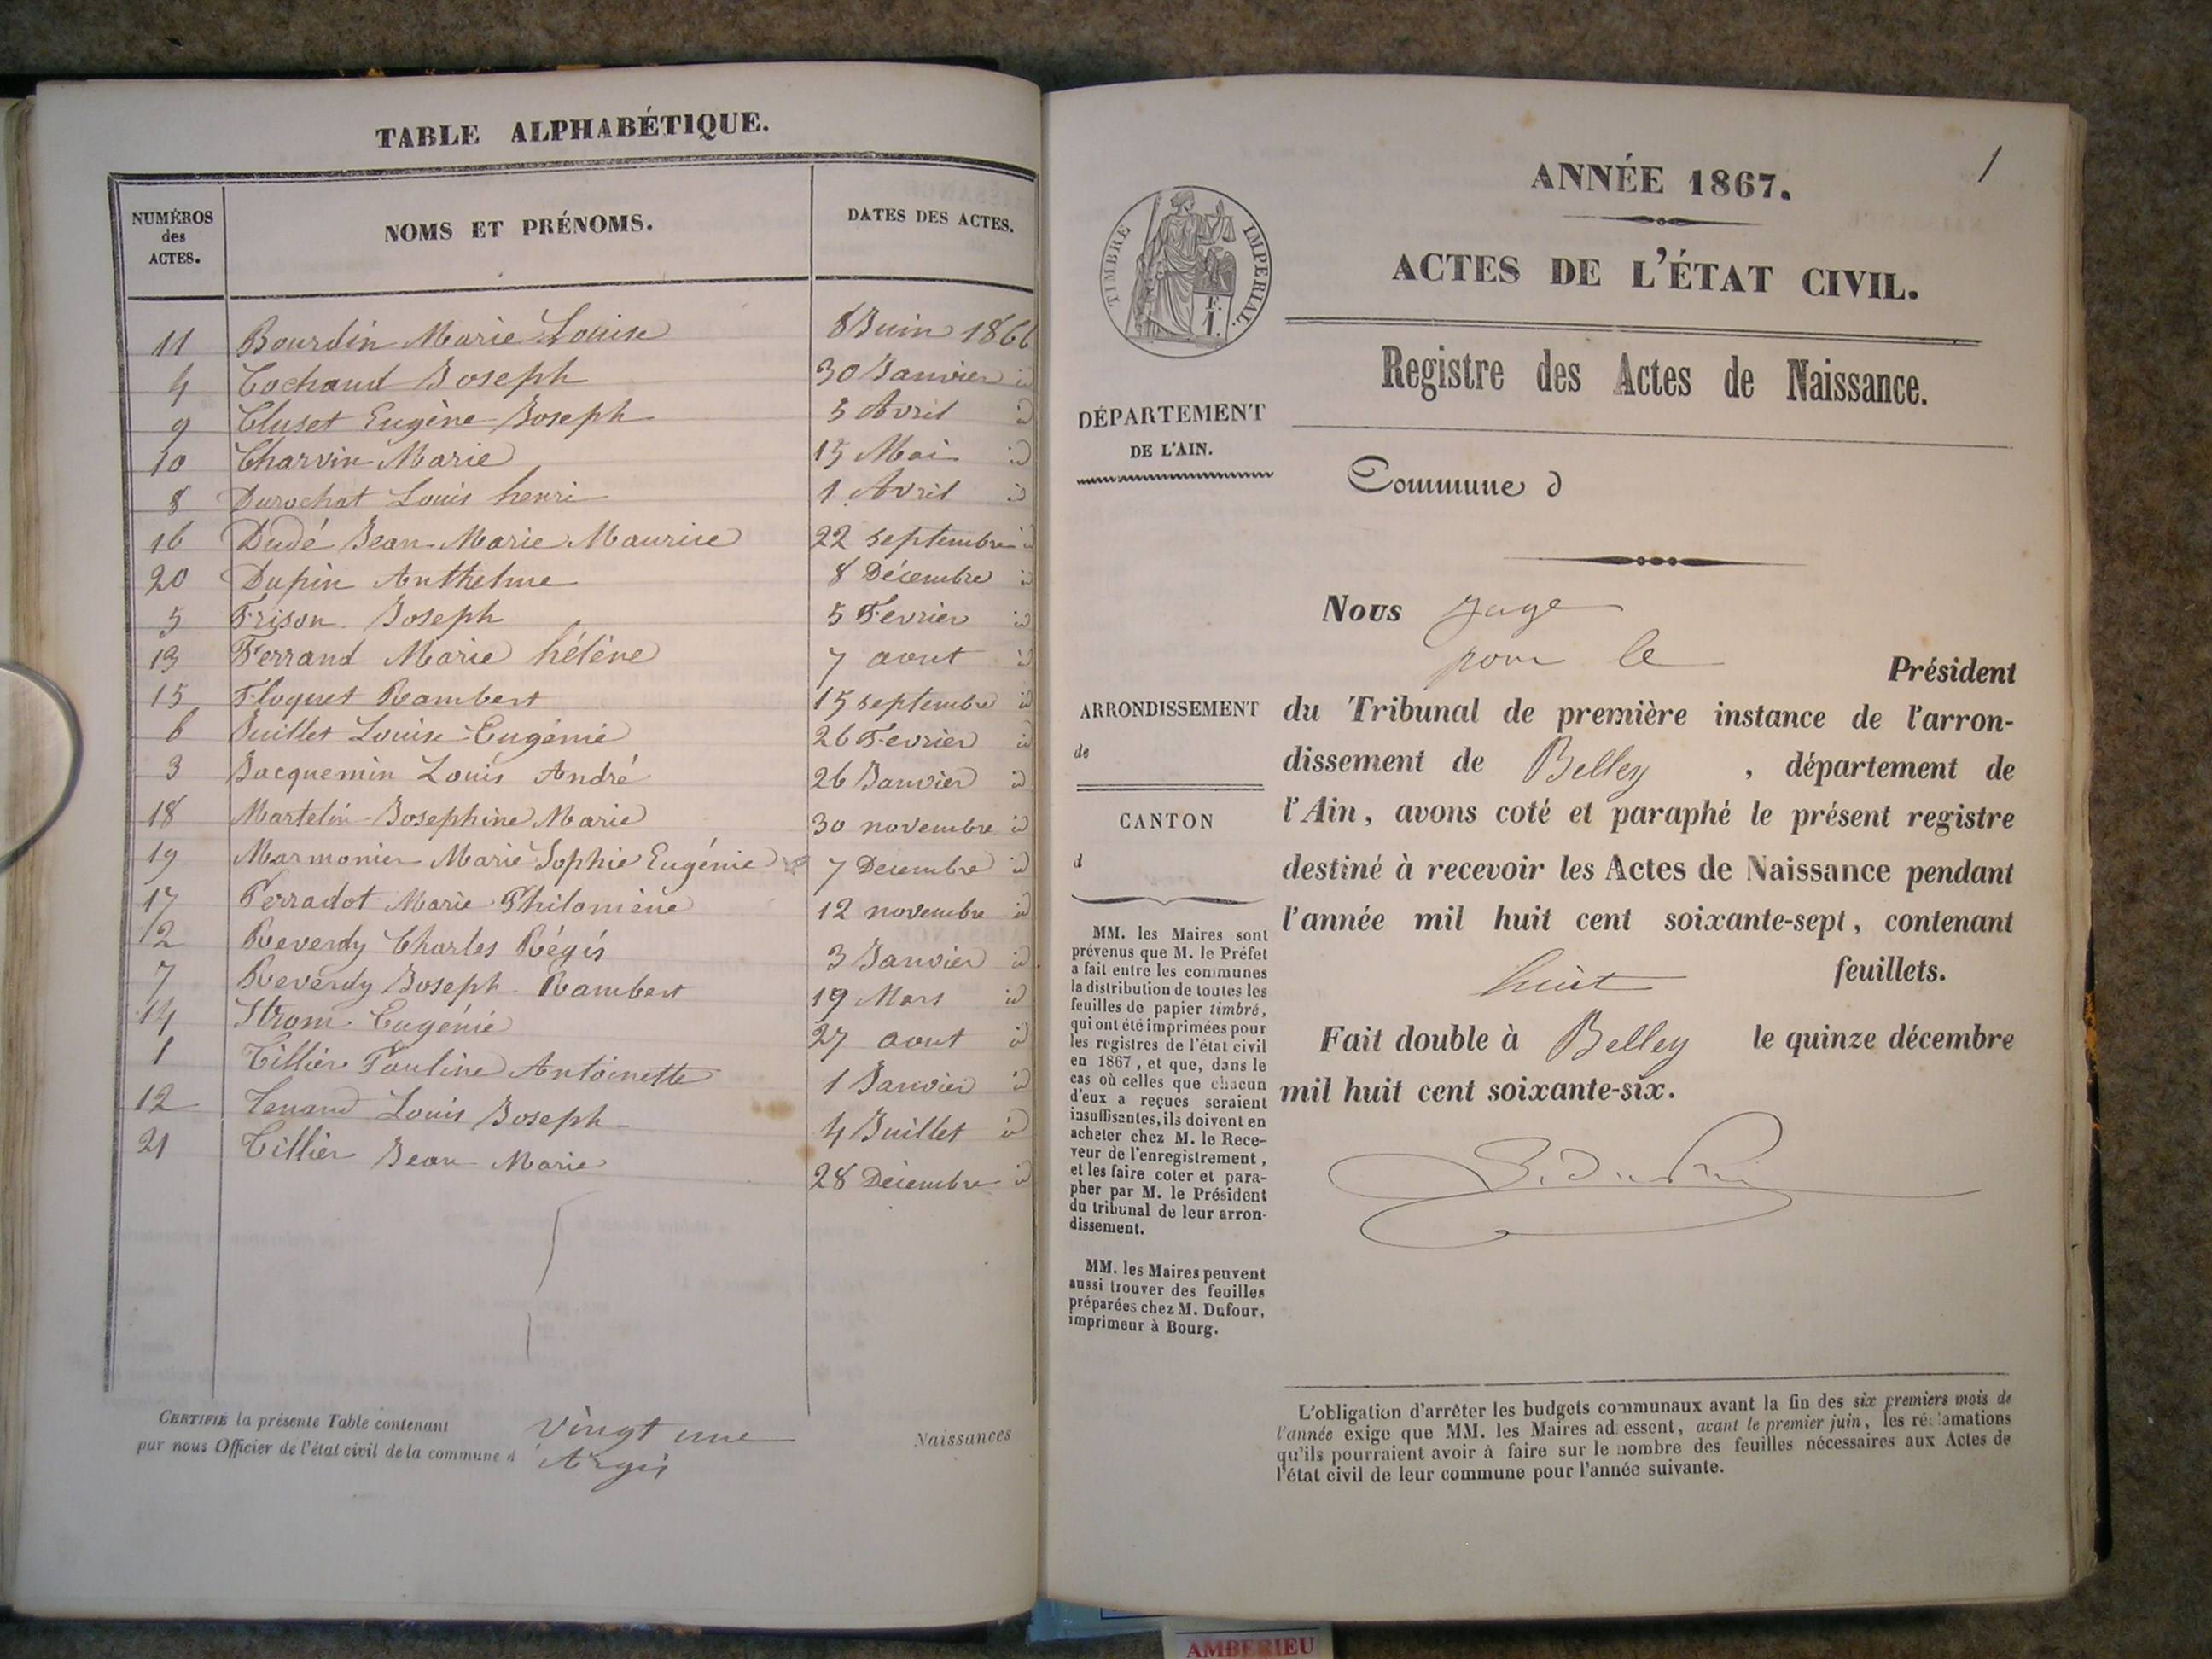 TABLE ALPHABÉTIQUE.
NUMÉROS des ACTES.
NOMS ET PRÉNOMS.
DATES DES ACTES.
11 Bourdin Marie Louise 8 Juin 1866
4 Cochaud Joseph 30 Janvier id
9 Cluset Eugène Joseph 5 Avril id
10 Charvin Marie 15 Mai id
8 Durochat Louis henri 1 Avril id
16 Dudé Jean Marie Maurice 22 septembre id
20 Dupin Anthelme 8 Décembre id
5 Frison Joseph 5 Fevrier id
13 Ferrand Marie hélène 7 aout id
15 Floquet Rambert 15 septembre id
6 Juillet Louise Eugénie 26 Fevrier id
3 Jacquemin Louis André 26 Janvier id
18 Martelin Josephine Marie 30 novembre id
19 Marmonier Marie Sophie Eugénie 7 Decembre id
17 Perradot Marie Philomène 12 novembre id
2 Reverdy Charles Régis 3 Janvier id
7 Reverdy Joseph Rambert 19 Mars id
14 Strom Eugénie 27 aout id
1 Tillier Pauline Antoinette 1 Janvier id
12 Tenand Louis Joseph 4 Juillet id
21 Tillier Jean Marie 28 Décembre id
CERTIFIÉ la présente Table contenant vingt une Naissances
par nous Officier de l'état civil de la commune d'Argis
1
ANNÉE 1867.
ACTES DE L'ÉTAT CIVIL.
TIMBRE IMPERIAL.
F.
1.
Registre des Actes de Naissance.
DÉPARTEMENT
DE L'AIN.
Commune d
Nous juge
pour le Président
du Tribunal de première instance de l'arron-
dissement de Belley, département de
l'Ain, avons coté et paraphé le présent registre
destiné à recevoir les Actes de Naissance pendant
l'année mil huit cent soixante-sept, contenant
huit feuillets.
Fait double à Belley le quinze décembre
mil huit cent soixante-six.
ARRONDISSEMENT
de
CANTON
d
MM. les Maires sont
prévenus que M. le Préfet
a fait entre les communes
la distribution de toutes les
feuilles de papier timbré,
qui ont été imprimées pour
les registres de l'état civil
en 1867, et que, dans le
cas où celles que chacun
d'eux a reçues seraient
insuffisantes, ils doivent en
acheter chez M. le Rece-
veur de l'enregistrement,
et les faire coter et para-
pher par M. le Président
du tribunal de leur arron-
dissement.
MM. les Maires peuvent
aussi trouver des feuilles
préparées chez M. Dufour,
imprimeur à Bourg.
L'obligation d'arrêter les budgets communaux avant la fin des six premiers mois de
l'année exige que MM. les Maires adressent, avant le premier juin, les réclamations
qu'ils pourraient avoir à faire sur le nombre des feuilles nécessaires aux Actes de
l'état civil de leur commune pour l'année suivante.
AMBERIEU